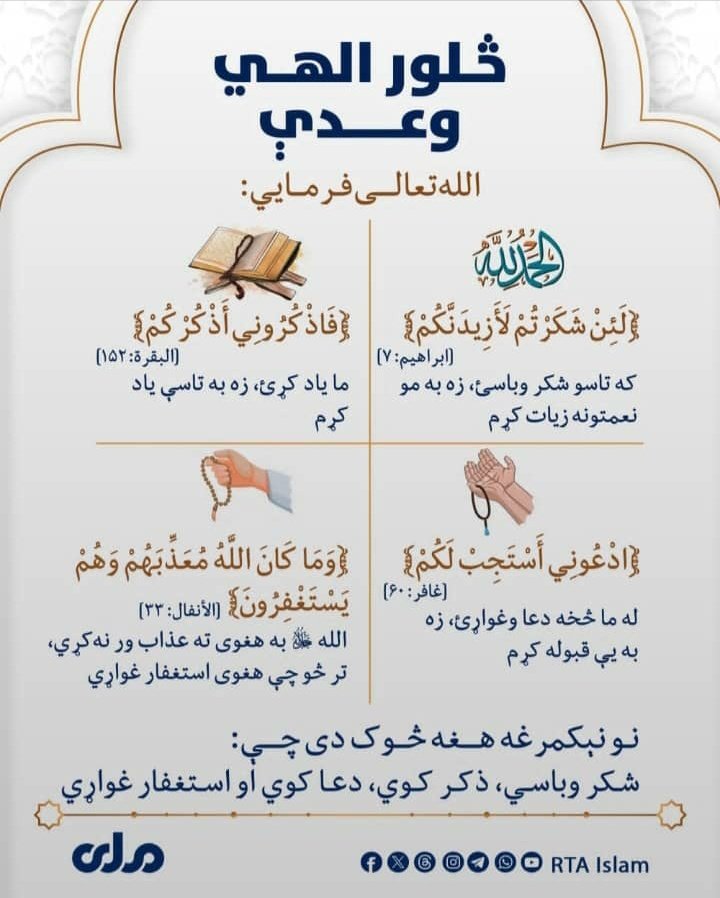 څلور الهي
وعدې
الله تعالی فرمایي:
الحمدلله
﴿لَئِنْ شَكَرْتُمْ لَأَزِيدَنَّكُمْ﴾
(ابراهیم:۷)
که تاسو شکر وباسئ، زه به مو
نعمتونه زیات کړم
﴿فَاذْكُرُونِي أَذْكُرْكُمْ﴾
(البقرة:۱۵۲)
ما یاد کړئ، زه به تاسې یاد
کړم
﴿ادْعُونِي أَسْتَجِبْ لَكُمْ﴾
(غافر:۶۰)
له ما څخه دعا وغواړئ، زه
به یې قبوله کړم
﴿وَمَا كَانَ اللَّهُ مُعَذِّبَهُمْ وَهُمْ
يَسْتَغْفِرُونَ﴾ (الأنفال:۳۳)
الله ﷻ به هغوی ته عذاب ور نه کړي،
تر څو چې هغوی استغفار غواړي
نو نېکمرغه هغه څوک دی چې:
شکر وباسي، ذکر کوي، دعا کوي او استغفار غواړي
ملي
RTA Islam